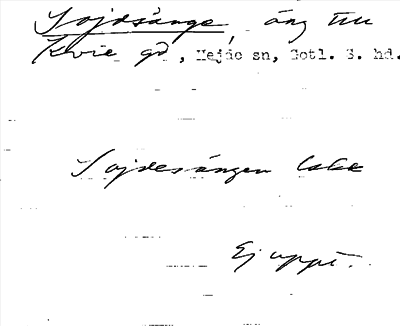 Sojdsänge, äng till
Kvie gd, Hejde sn, Gotl. S. hd.
Sojdesängen
Ej uppt.